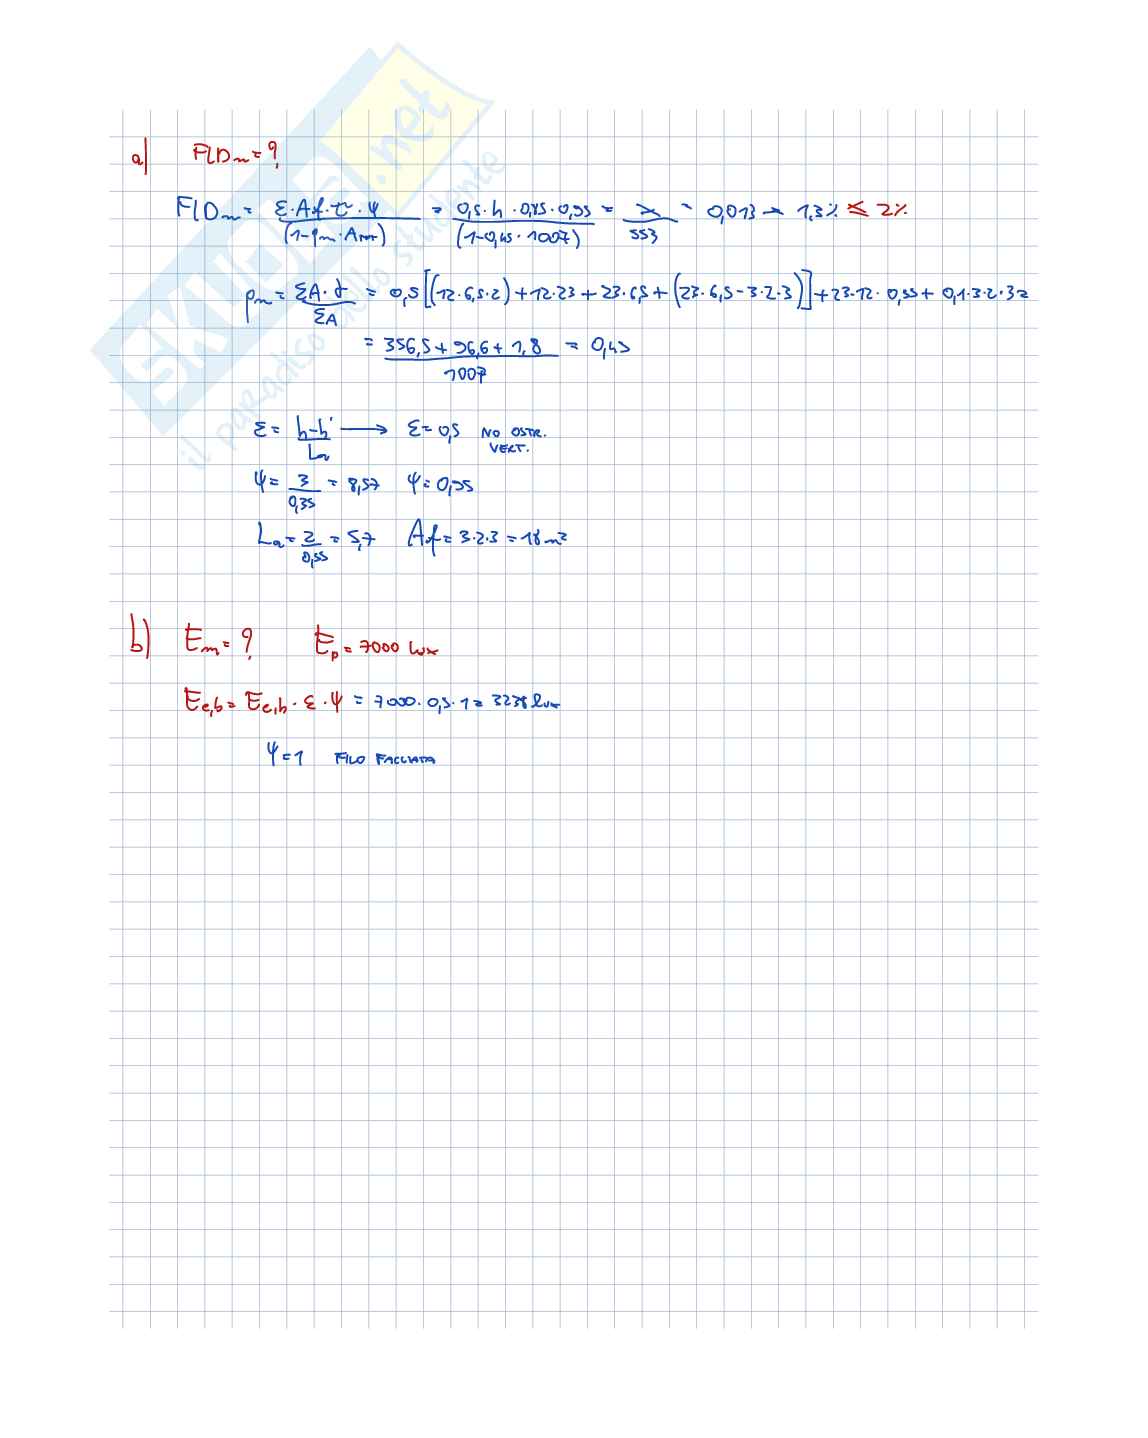 a) FLDm = ?
FLDm = ε · Af · τ · ψ / (1-ρm · Atot) = 0,5 · h · 0,85 · 0,95 / (1-0,45 · 1007) = 7 / 553 = 0,013 → 1,3% ≤ 2%
ρm = ΣA · ρ / ΣA = 0,5 [(12 · 6,5 · 2) + 12 · 23 + 23 · 6,5 + (23 · 6,5 - 3 · 2 · 3)] + 23 · 12 · 0,35 + 0,1 · 3 · 2 · 3 =
= 356,5 + 96,6 + 1,8 / 1007 = 0,45
ε = h-h' / La → ε = 0,5 NO OSTR. VERT.
ψ = 3 / 0,35 = 8,57 ψ = 0,95
La = 2 / 0,35 = 5,7 Af = 3 · 2 · 3 = 18 m²
b) Em = ? Ep = 7000 lux
Ee,b = Ee,h · ε · ψ = 7000 · 0,5 · 1 = 3238 lux
ψ = 1 FILO FACCIATA
SKUOLA.net
il paradiso dello studente